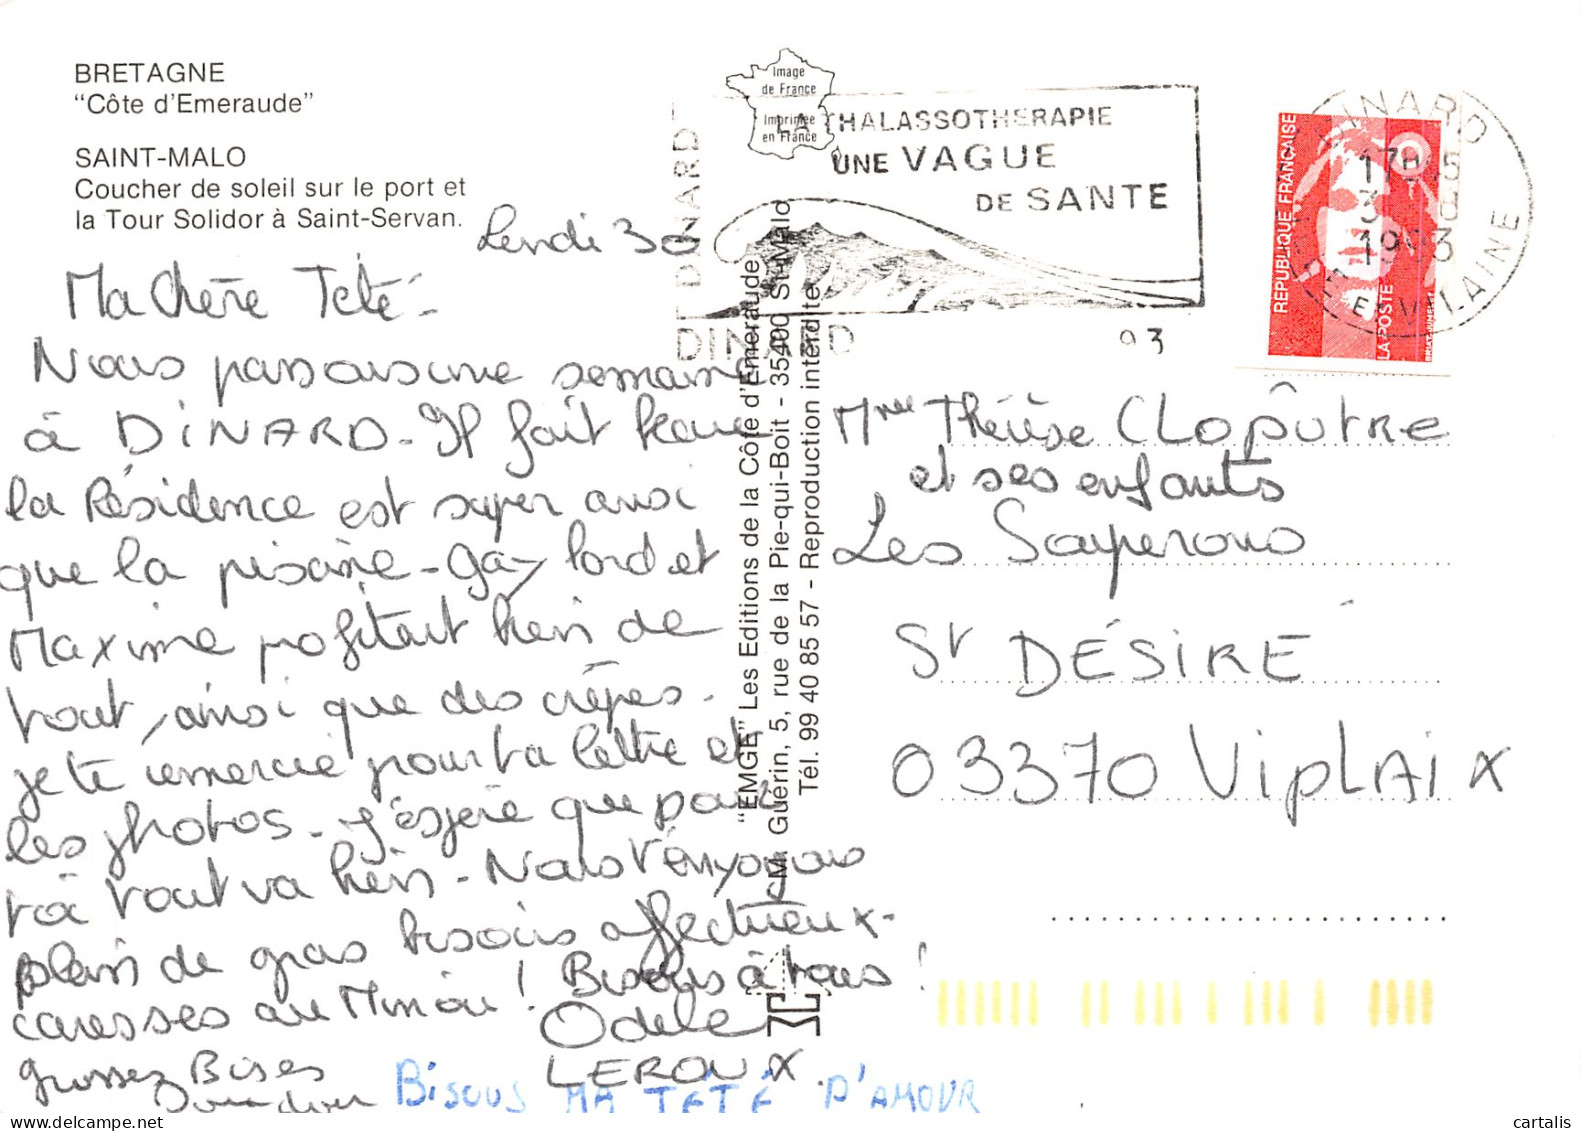 BRETAGNE
"Côte d'Emeraude"
SAINT-MALO
Coucher de soleil sur le port et
la Tour Solidor à Saint-Servan.
Image
de France
Imprimée
en France
LA THALASSOTHERAPIE
UNE VAGUE
DE SANTE
DINARD
DINARD
REPUBLIQUE FRANÇAISE
LA POSTE
DINARD
17H45
1993
ILLE ET VILAINE
93
Lundi 30
Ma Chère Teté -
Nous passons une semaine
à DINARD - Il fait beau
la Résidence est super ainsi
que la piscine - Gaylord et
Maxime profitent bien de
tout, ainsi que des crêpes.
Je te remercie pour ta lettre et
les photos - J'espère que pour
toi tout va bien - Nous t'envoyons
plein de gros bisous affectueux -
caresses au Minou ! Bisous à tous !
Odele
LEROUX.
grosses Bises
BISOUS MA TÉTÉ D'AMOUR
"EMGE" Les Editions de la Côte d'Emeraude
M. Guérin, 5, rue de la Pie-qui-Boit - 35400 St-Malo
Tél. 99 40 85 57 - Reproduction interdite
Mme Thérèse CLOPÛTRE
et ses enfants
Les Sayperons
St DÉSIRÉ
03370 ViPLAiX
cartalis